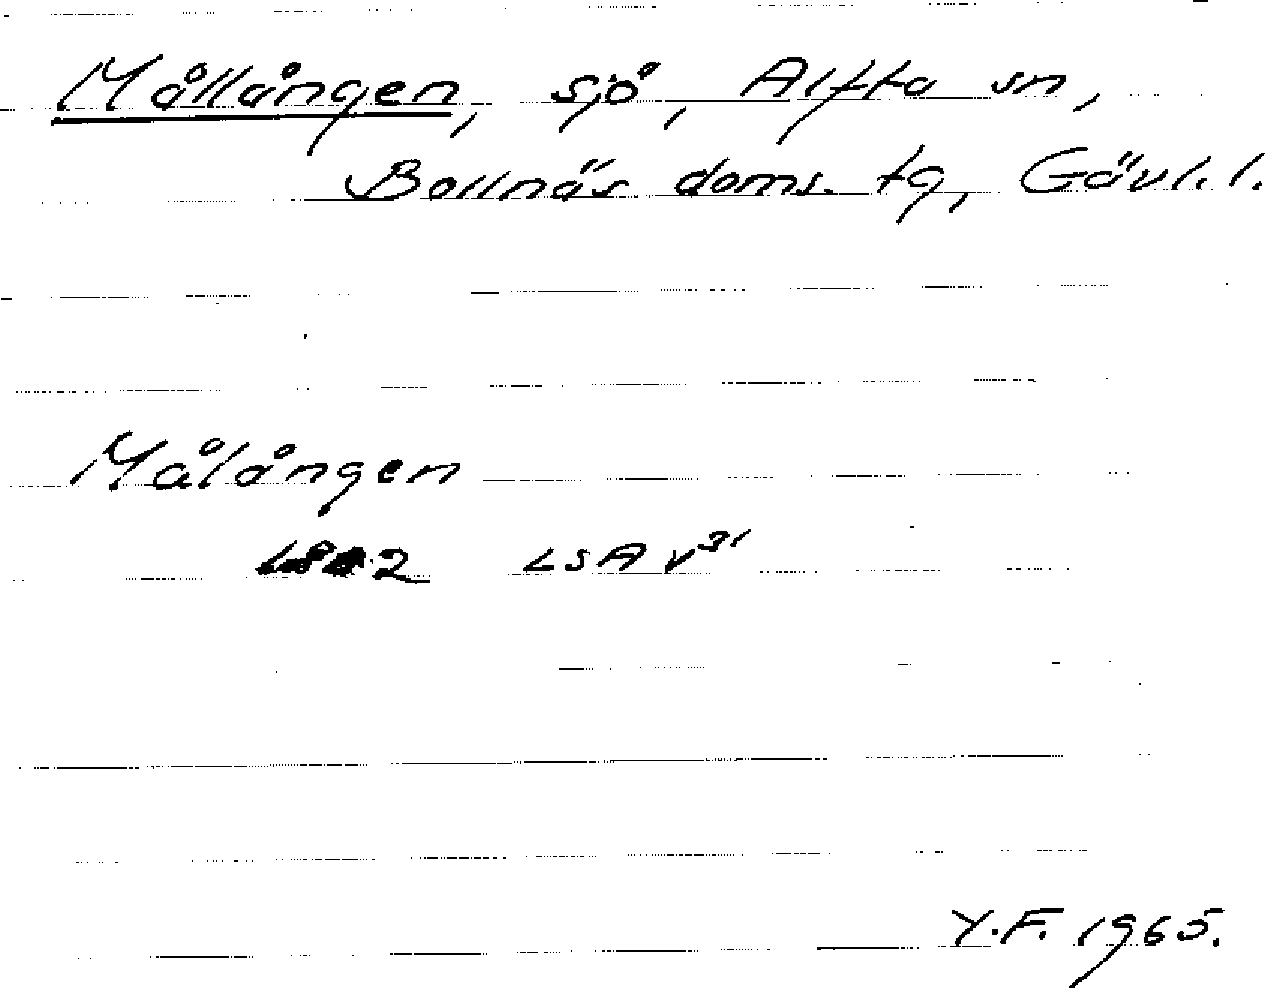 Mållången, sjö, Alfta sn,
Bollnäs doms. tg, Gävl. l.
Målången
LSA v³¹
Y.F. 1965.